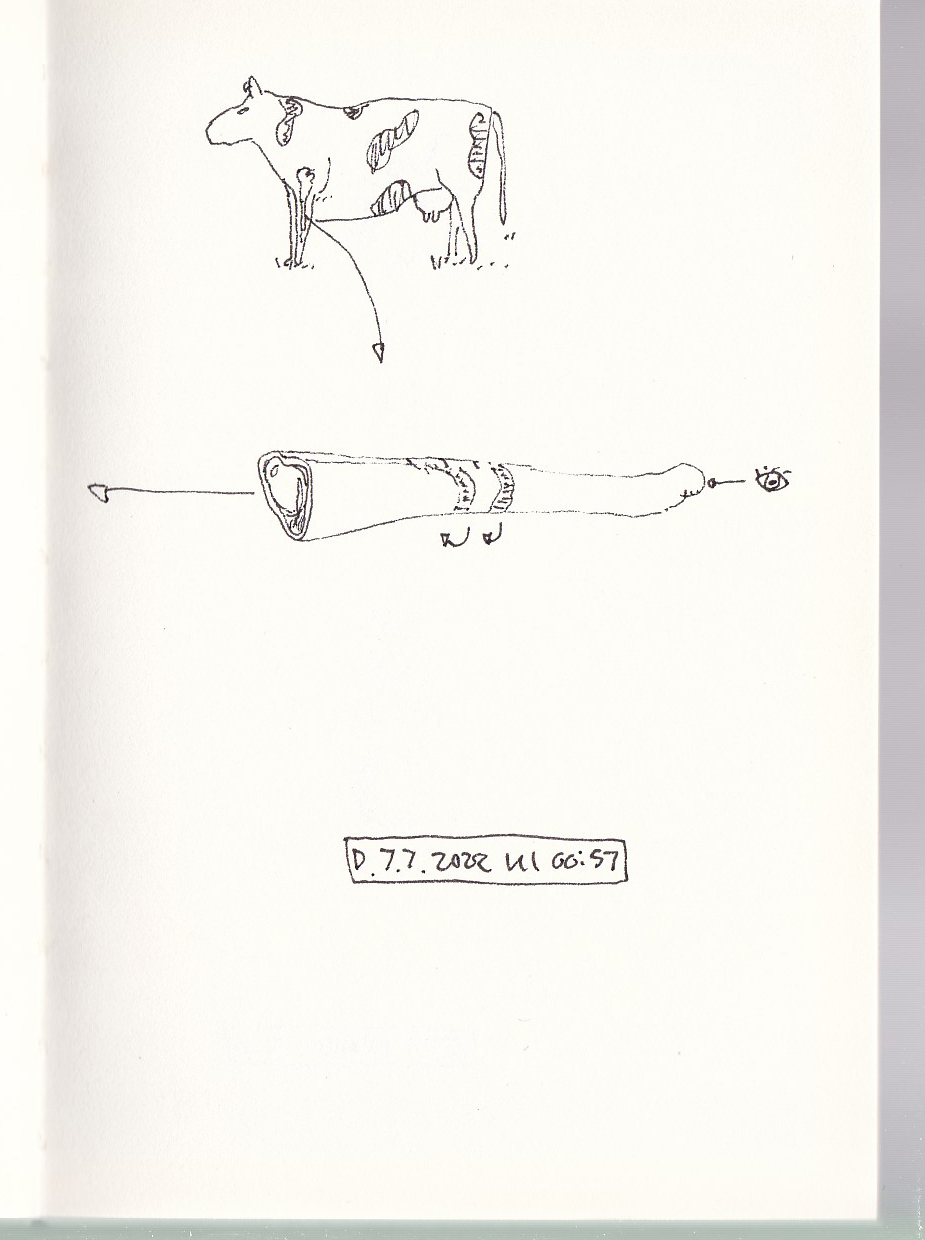 D. 7.7.2022 kl 00:57